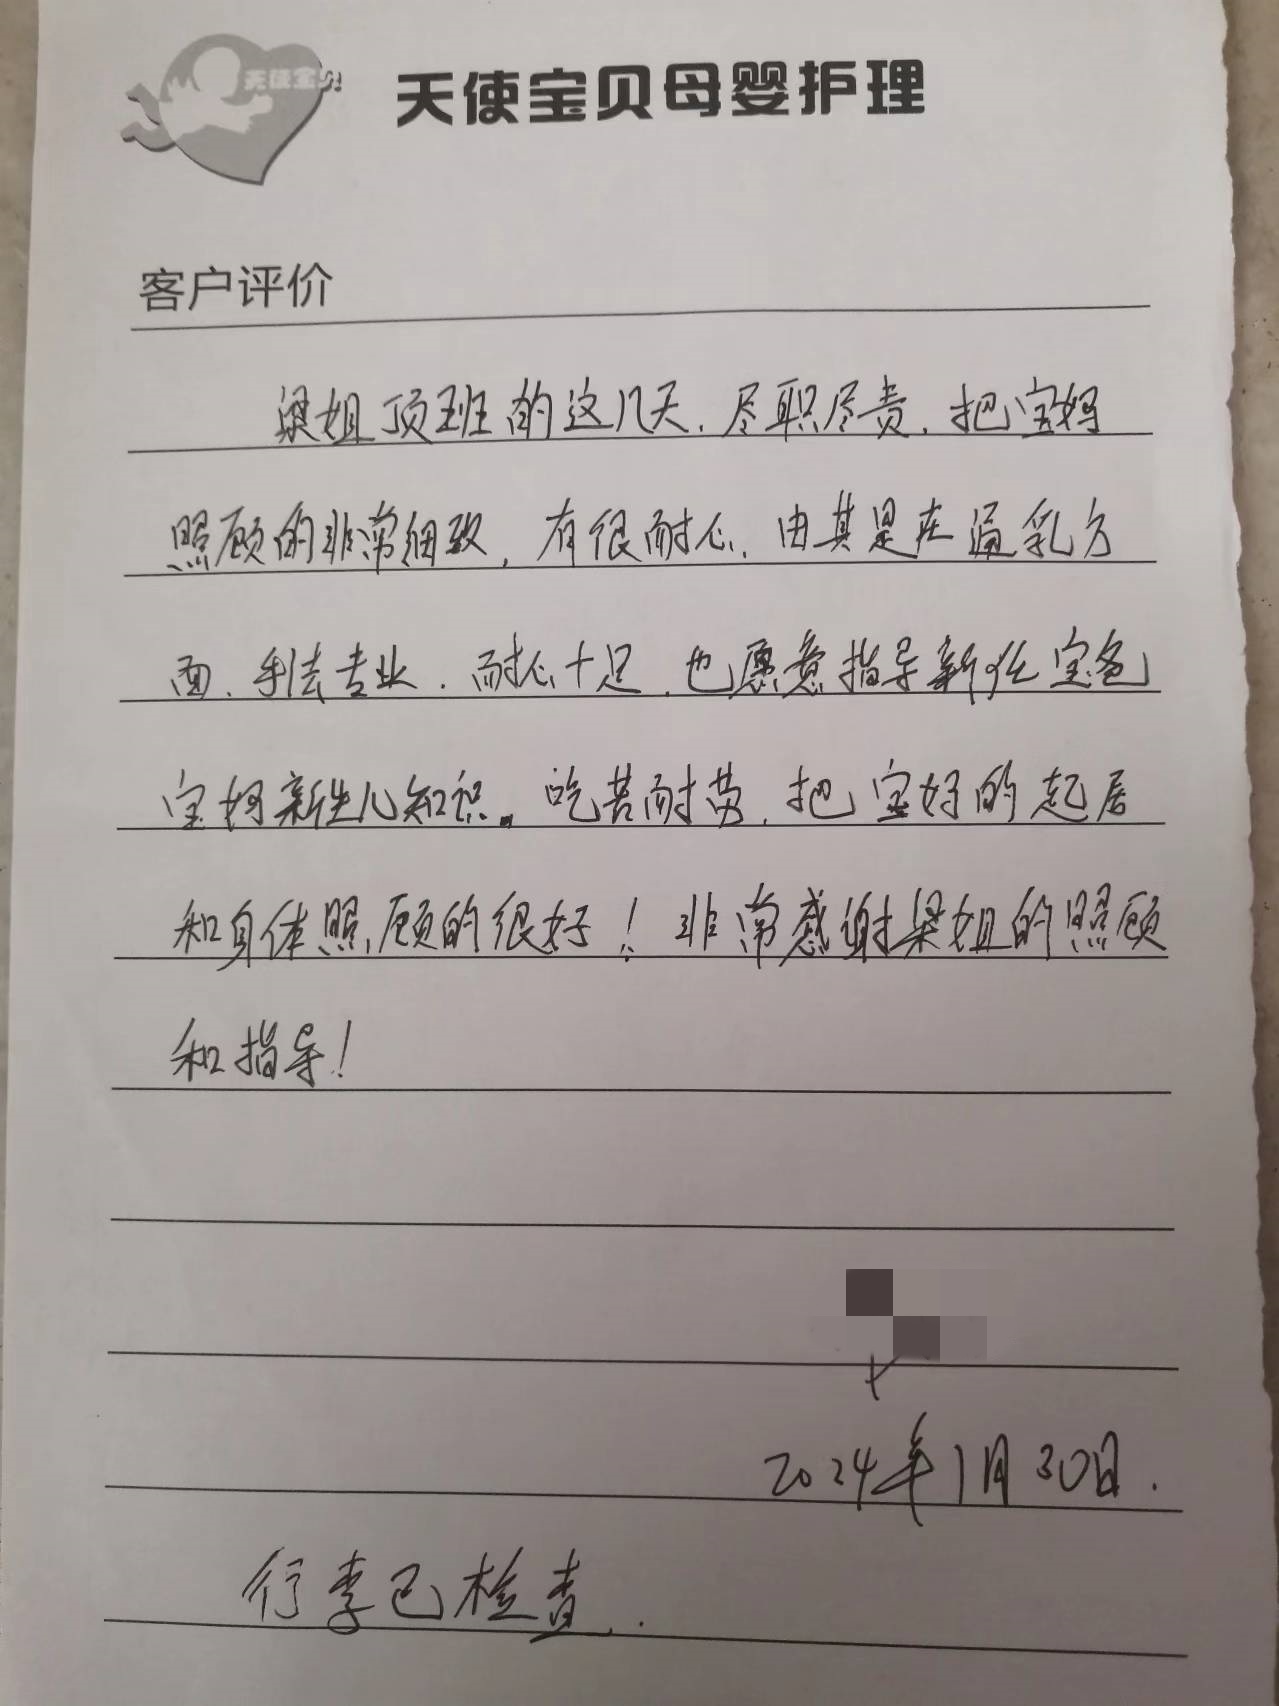 天使宝贝
天使宝贝母婴护理
客户评价
梁姐顶班的这几天,尽职尽责,把宝妈
照顾的非常细致,有很耐心,由其是在通乳方
面,手法专业,耐心十足,也愿意指导新任宝爸
宝妈新生儿知识。吃苦耐劳,把宝妈的起居
和身体照顾的很好!非常感谢梁姐的照顾
和指导!
2024年1月30日.
行李已检查.